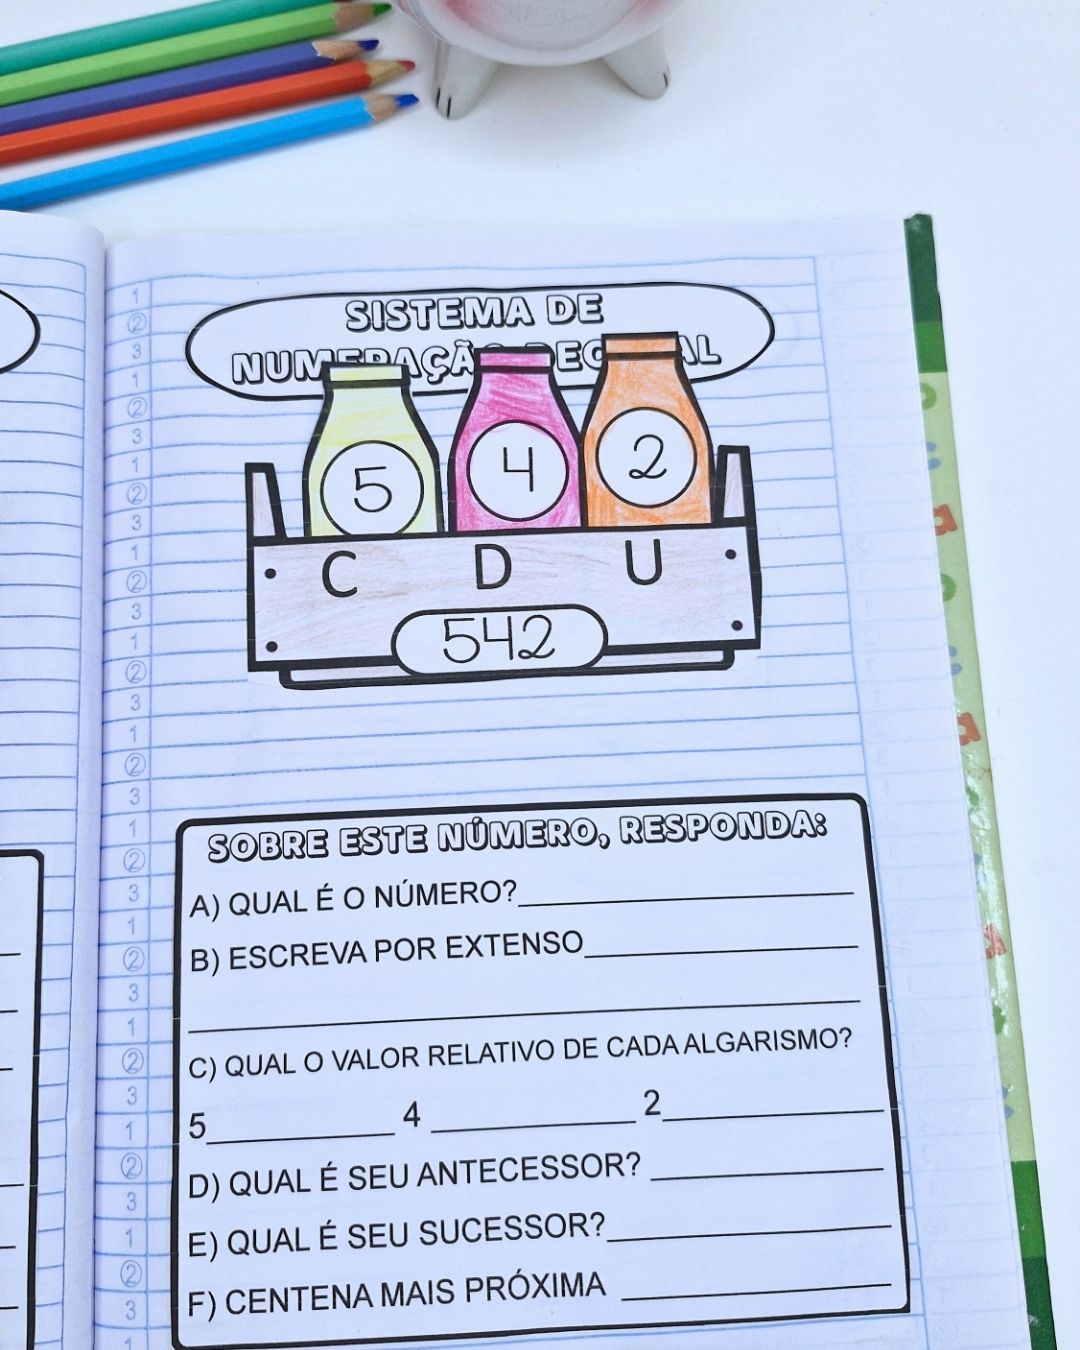 SISTEMA DE
NUMERAÇÃO DECIMAL
5 4 2
C D U
542
SOBRE ESTE NÚMERO, RESPONDA:
A) QUAL É O NÚMERO?
B) ESCREVA POR EXTENSO
C) QUAL O VALOR RELATIVO DE CADA ALGARISMO?
5 4 2
D) QUAL É SEU ANTECESSOR?
E) QUAL É SEU SUCESSOR?
F) CENTENA MAIS PRÓXIMA